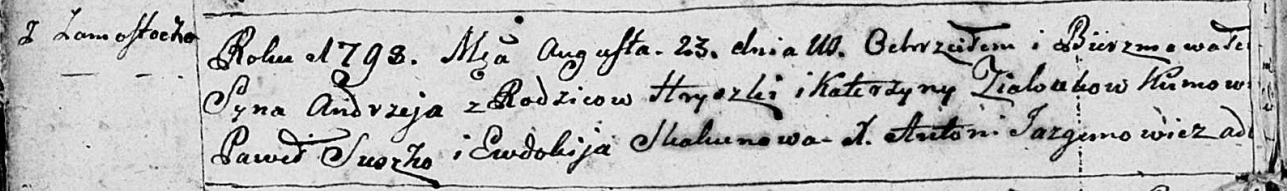 z Zamostocza
Roku 1798. Msca Augusta. 23. dnia W. Ochrzciłem i Bierzmowałe
Syna Andrzeja z Rodzicow Hryszki i Katerzyny Ziałonkow Kumow
Paweł Suszko i Ewdokija Skakunowa X. Antoni Jazgunowicz ad